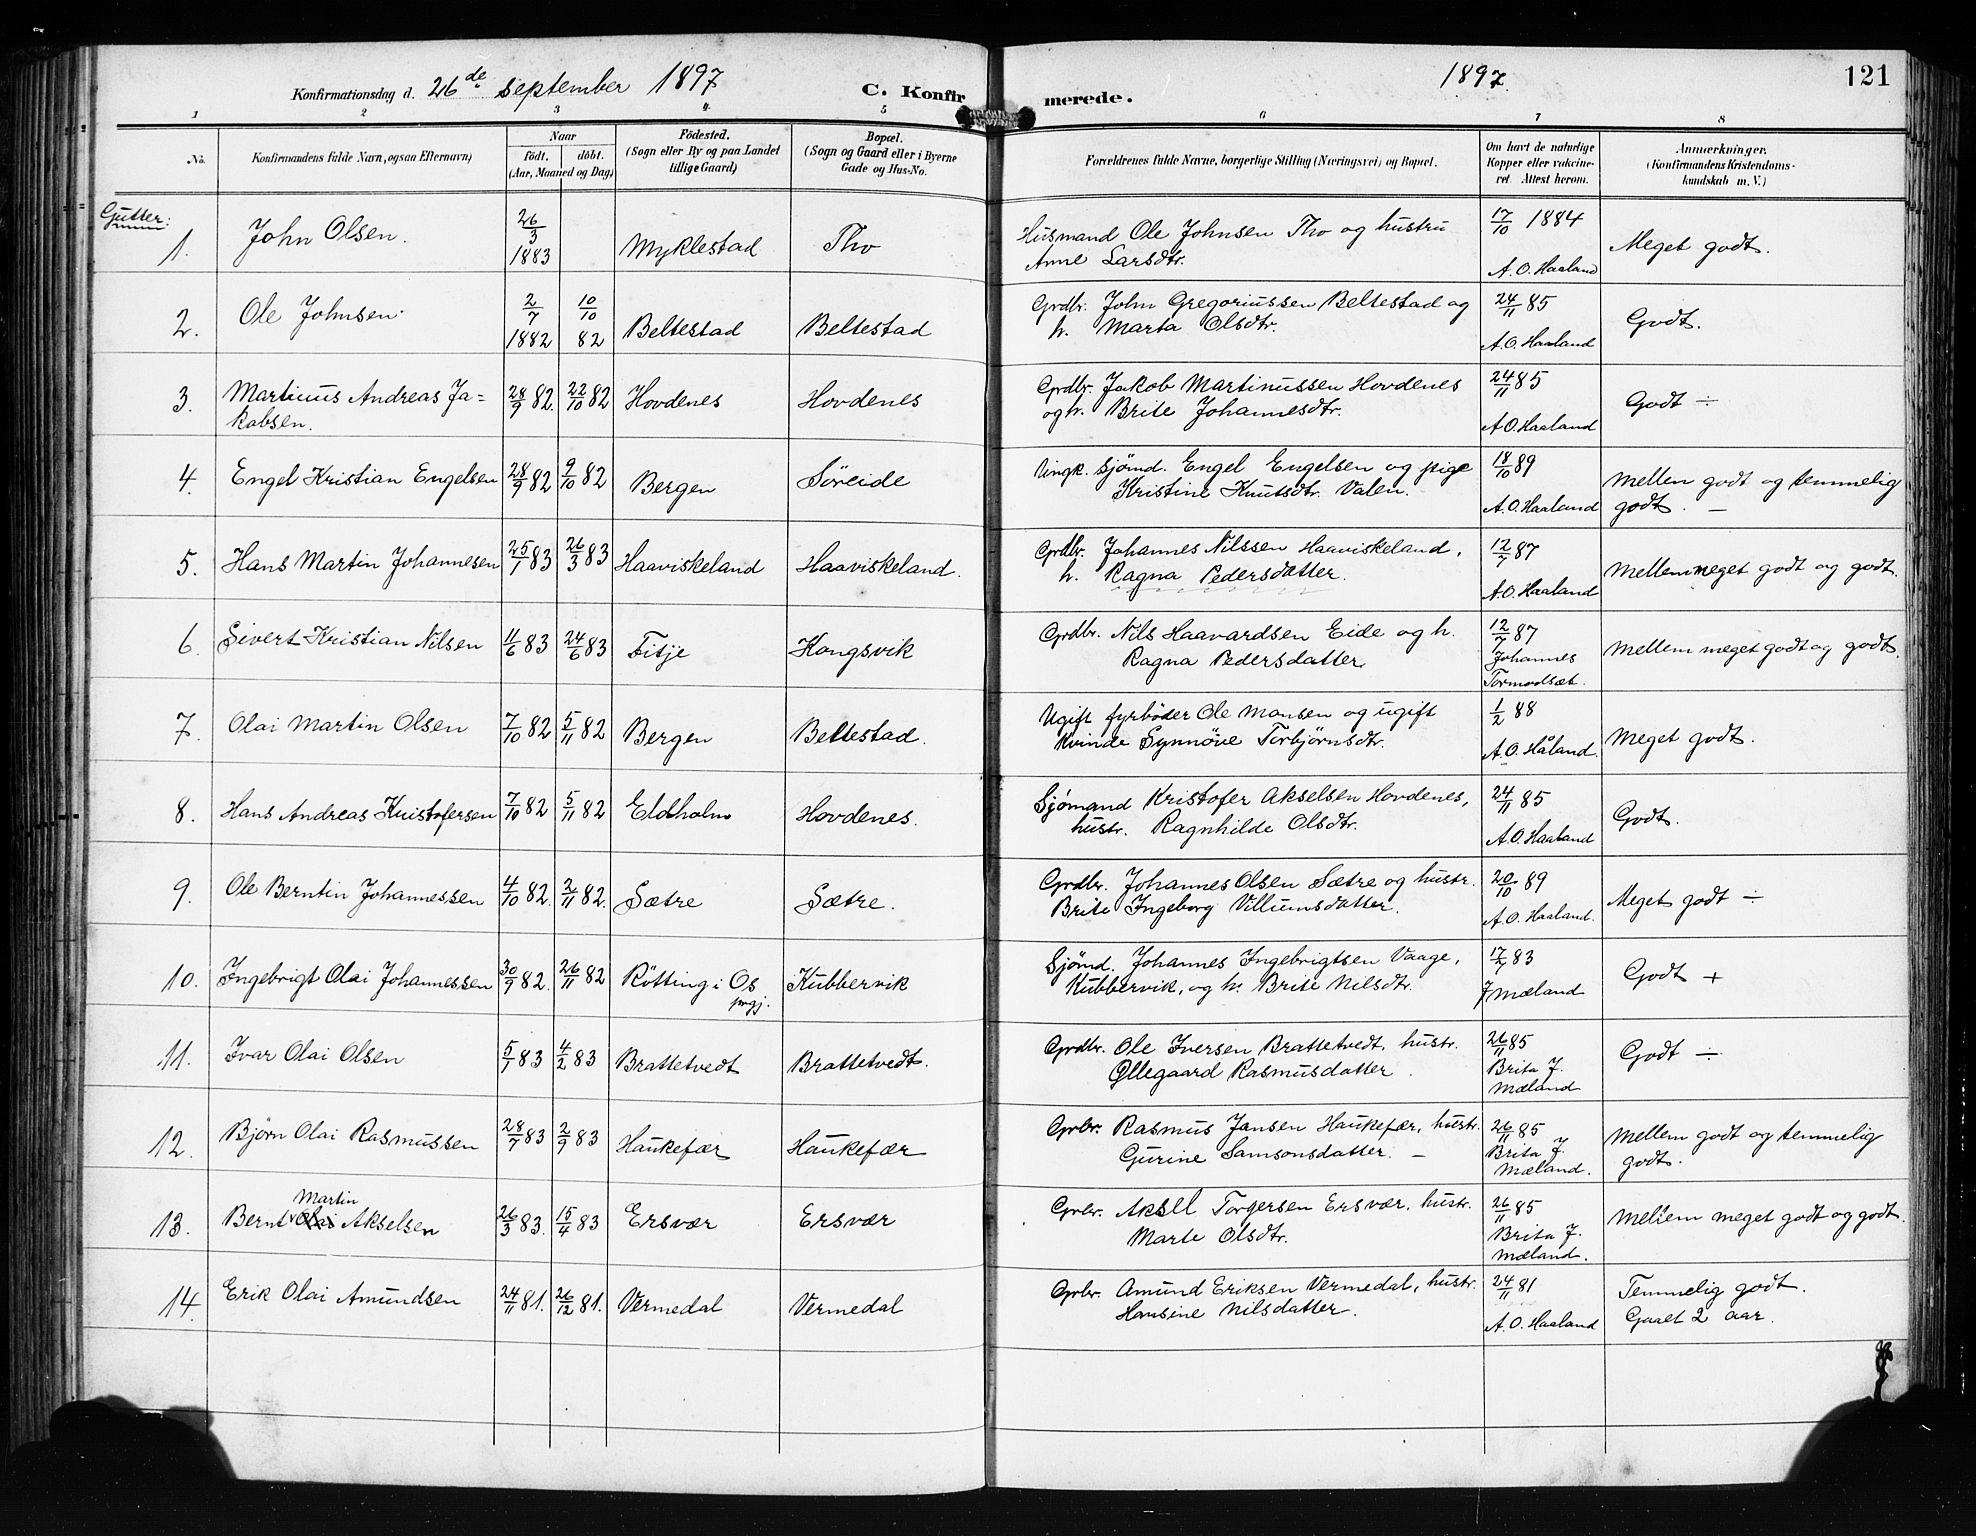 Konfirmationsdag d. 26de september 1897 C. Konfir
merede. 1897. 121
1 2 3 4 5 6 7 8
No. Konfirmandens fulde Navn, ogsaa Efternavn) Naar Födested. Bopæl.
födt. döbt. (Sogn eller By og paa Landet (Sogn og Gaard eller i Byerne
(Aar, Maaned og Dag) tillige Gaard) Gade og Hus-No.
Forældrenes fulde Navne, borgerlige Stilling (Næringsvei) og Bopæl. Om havt de naturlige Anmærkninger.
Kopper eller vakcine- (Konfirmandens Kristendoms-
ret Attest herom. kundskab m. V.)
Gutter:
1. John Olsen. 26/3 1883 Myklestad Tho
Husmand Ole Johnsen Tho og hustru 17/10 1884 Meget godt.
Anne Larsdtr. A. O. Haaland
2. Ole Johnsen 2/7 1882 10/10 82 Beltestad Beltestad
Grdbr. John Gregoriussen Beltestad og 24/11 85 Godt.
h. Marta Olsdtr. A. O. Haaland
3. Martinus Andreas Ja= 28/9 82. 22/10 82 Hovdenes Hovdenes
kobsen.
Grdbr. Jakob Martinussen Hovdenes 24/11 85 Godt ÷
og h. Brite Johannesdtr. A O. Haaland
4. Engel Kristian Engelsen 28/9 82 9/10 82 Bergen Söreide
Ungk. sjömd. Engel Engelsen og pige 18/10 89 Mellem godt og temmelig
Kristine Knutsdtr. Valen. A. O. Haaland godt. –
5. Hans Martin Johannesen 25/1 83 26/3 83 Haaviskeland Haaviskeland.
Grdbr. Johannes Nilssen Haaviskeland, 12/7 87 Mellem meget godt og godt.
h. Ragna Pedersdatter. A. O. Haaland
6. Sivert Kristian Nilsen 11/6 83 24/6 83 Fitje Hongsvik
Grdbr. Nils Haavardsen Eide og h. 12/7 87 Mellem meget godt og godt.
Ragna Pedersdatter Johannes
Tormodsæt.
7. Olai Martin Olsen 7/10 82 5/11 82 Bergen Beltestad.
Ugift fyrböder Ole Monsen og ugift 1/2 88 Meget godt.
kvinde Synnöve Torbjörnsdtr. A. O. Håland.
8. Hans Andreas Kristofersen 7/10 82 5/11 82 Eldholm Hovdenes.
Sjömand Kristofer Akselsen Hovdenes, 24/11 85 Godt.
hustr. Ragnhilde Olsdtr. A. O. Haaland
9. Ole Berntin Johannessen 4/10 82. 2/11 82. Sætre Sætre.
Grdbr. Johannes Olsen Sætre og hustr. 20/10 89 Meget godt ÷
Brite Ingeborg Villiumsdatter. A. O. Haaland.
10. Ingebrigt Olai Johannessen 30/9 82. 26/11 82 Rötting i Os Kubbervik
prgj.
Sjömd. Johannes Ingebrigtsen Vaage, 17/7 83 Godt +
Kubbervik, og h. Brite Nilsdtr. J Mæland
11. Ivar Olai Olsen 5/1 83 4/2 83 Brattetvedt Brattetvedt.
Grdbr. Ole Iversen Brattetvedt, hustr. 26/11 85 Godt ÷
Ollegaard Rasmusdatter. Brita J.
Mæland
12. Björn Olai Rasmussen 28/7 83 2/9 83 Haukefær Haukefær
Grbr. Rasmus Jansen Haukefær, hustr. 26/11 85 Mellem godt og temmelig
Gurine Samsonsdatter. – Brita J. godt.
Mæland.
Martin
13. Bernt Olai Akselsen 26/3 83. 15/4 83 Ersvær Ersvær
Grbr. Aksel Torgersen Ersvær, hustr. 26/11 85 Mellem meget godt og godt.
Marte Olsdtr. Brita J.
Mæland.
14. Erik Olai Amundsen 24/11 81. 26/12 81. Vermedal Vermedal
Grbr. Amund Eriksen Vermedal, hustr. 24/11 81 Temmelig godt.
Hansine Nilsdatter. A. O. Haaland Gaaet 2 aar.